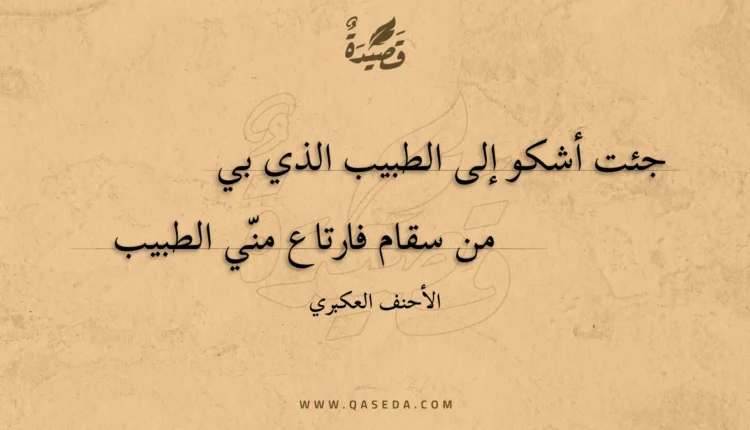 قَصِيْدَةٌ
جئت أشكو إلى الطبيب الذي بي
من سقام فارتاع منّي الطبيب
الأحنف العكبري
WWW.QASEDA.COM